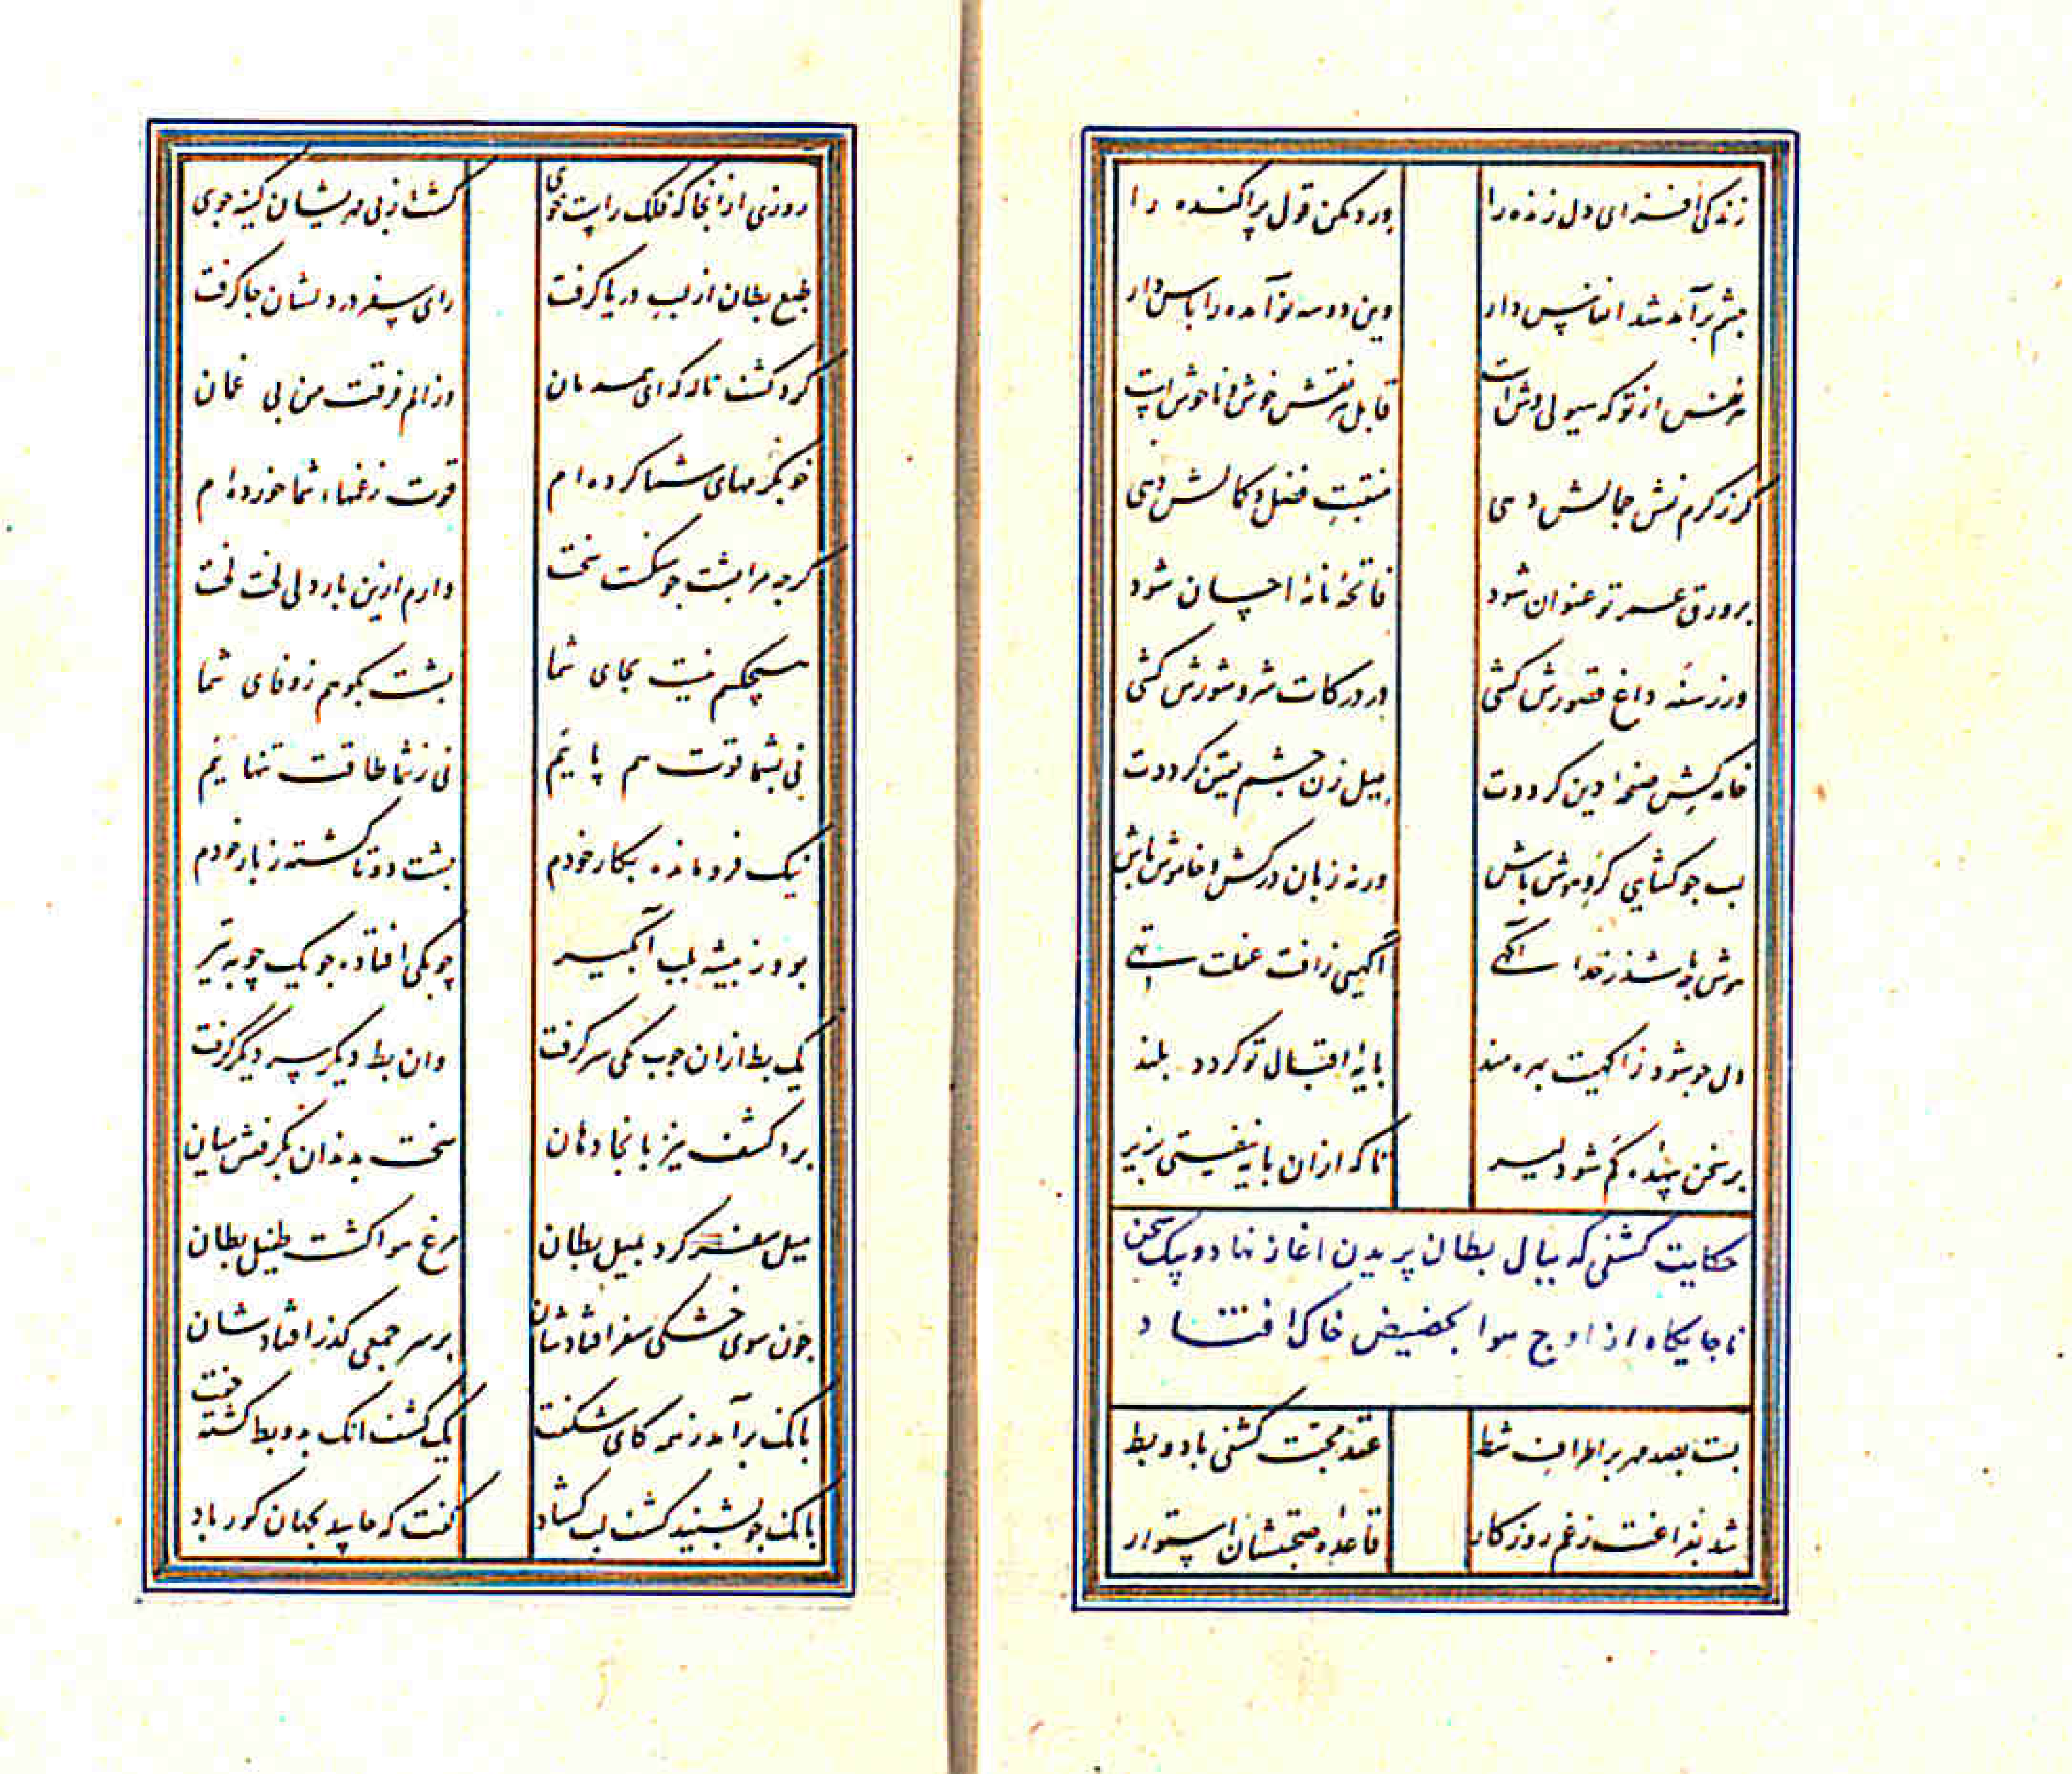 زندگی افزای دل زنده را ورد مکن قول پراکنده را
چشم برآمد شد انفاس دار وین دو سه نوآمده را پاس دار
هر نفس از تو که هیولی وش است قابل هر نقش خوش و ناخوش است
گر ز کرم نقش جمالش دهی منقبت فضل و کمالش دهی
بر ورق عمر تو عنوان شود فاتحه نامه احسان شود
ور ز سفه داغ قصورش کشی در درکات شر و شورش کشی
خامه کش صفحه دین گرددت میل زن چشم یقین گرددت
لب چو گشایی گرو هوش باش ورنه زبان درکش و خاموش باش
هوش چه باشد ز خدا آگهی آگهیی ز آفت غفلت تهی
دل چو شود ز آگهیت بهره مند پایه اقبال تو گردد بلند
بر سخن بیهده کم شو دلیر تا که ازان پایه نیفتی بزیر
حکایت کشفی که ببال بطان پریدن اغاز نهاد و بیک سخن
ناجایگاه از اوج هوا بحضیض خاک افتاد
بست بصد مهر بر اطراف شط عقد محبت کشفی با دو بط
شد بفراغت ز غم روزگار قاعده صحبتشان استوار
روزی ازانجا که فلک راست خوی گشت ز بی مهریشان کینه جوی
طبع بطان از لب دریا گرفت رای سفر در دلشان جا گرفت
کرد کشف ناله که ای همدمان وز الم فرقت من بی غمان
خو بکرمهای شما کرده ام قوت ز غمهای شما خورده ام
گرچه مرا پشت چو سنگست سخت دارم ازین بار دلی لخت لخت
هیچکسم نیست بجای شما پشت بکوهم ز وفای شما
نی بشما قوت هم پاییم نی ز شما طاقت تنهاییم
نیک فرومانده بکار خودم پشت دوتا گشته ز بار خودم
بود ز بیشه بلب آبگیر چوبکی افتاده چو یک چوبه تیر
یک بط ازان چوب یکی سر گرفت وان بط دیگر سر دیگر گرفت
برد کشف نیز بانجا دهان سخت بدندان بگرفتش میان
میل سفر کرد بمیل بطان مرغ هوا گشت طفیل بطان
چون سوی خشکی سفر افتادشان بر سر جمعی گذر افتادشان
بانگ برآمد ز همه کای شگفت یک کشف انک بدو بط گشته جفت
بانگ چو بشنید کشف لب گشاد گفت که حاسد بجهان کور باد